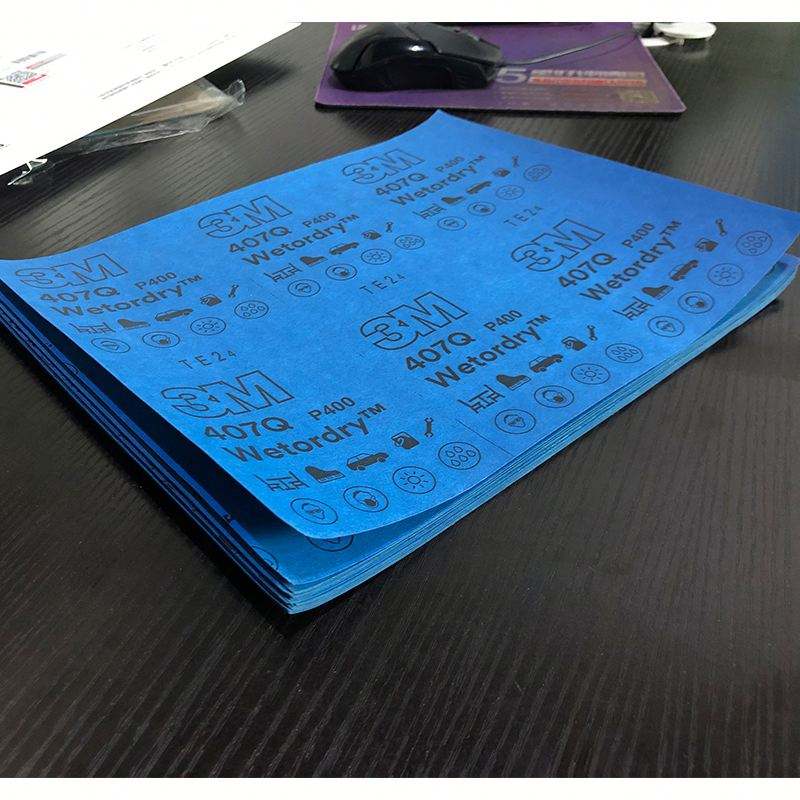 3M
407Q P400
Wetordry™
3M
407Q P400
Wetordry™
3M
407Q P400
Wetordry™
TE24
TE24
TE24
3M
407Q P400
Wetordry™
3M
407Q P400
Wetordry™
3M
407Q P400
Wetordry™
5